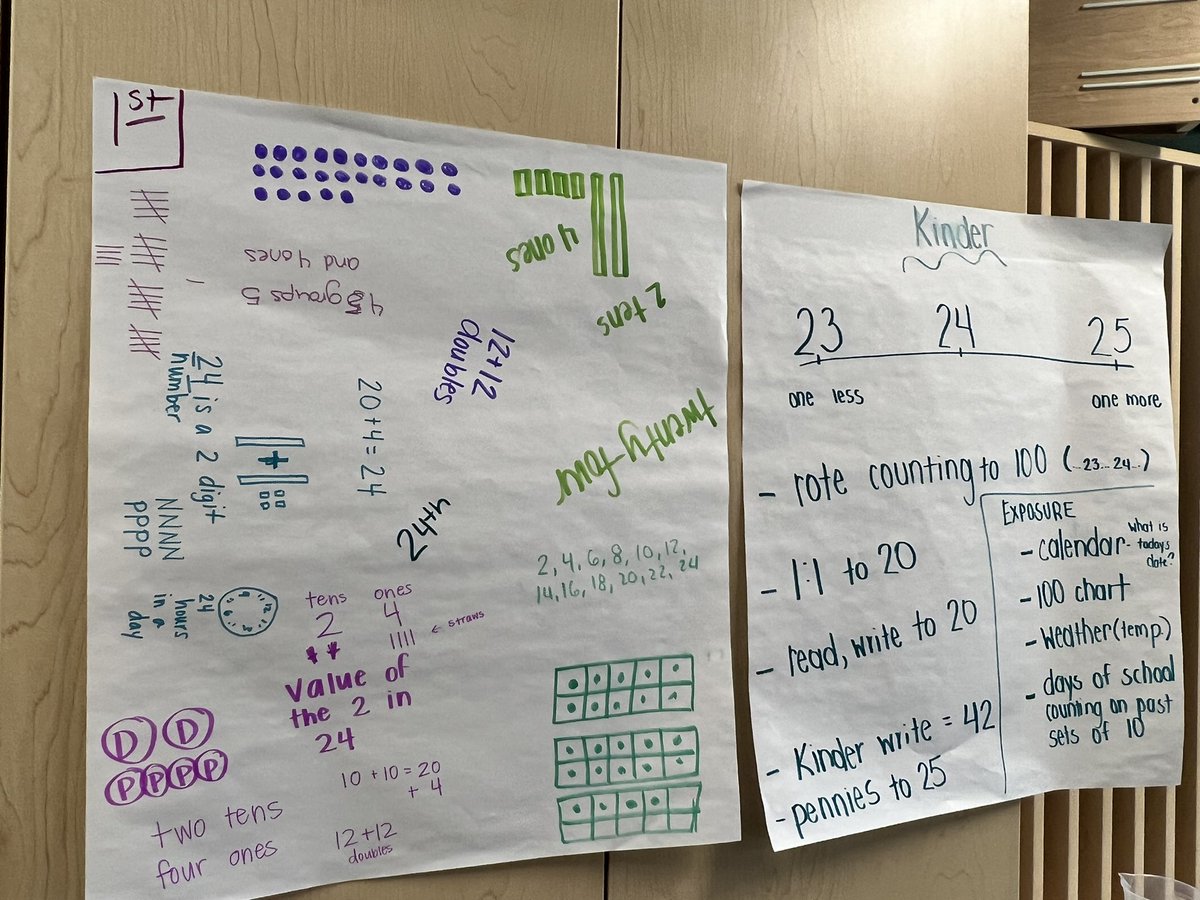 1st
4 ones
2 tens
4 groups 5
and 4 ones
12+12
doubles
24 is a 2 digit
number
20+4=24
twenty-four
NNNN
PPPP
24
hours
in a
day
tens ones
2 4
← straws
value of
the 2 in
24
2, 4, 6, 8, 10, 12,
14, 16, 18, 20, 22, 24
D D
P P P P
two tens
four ones
10 + 10 = 20
+ 4
12+12
doubles
Kinder
23 24 25
one less
one more
- rote counting to 100 (...23...24...)
- 1:1 to 20
- read, write to 20
- Kinder write = 42
- pennies to 25
EXPOSURE
- calendar - what is
todays
date?
- 100 chart
- weather (temp.)
- days of school
counting on past
sets of 10